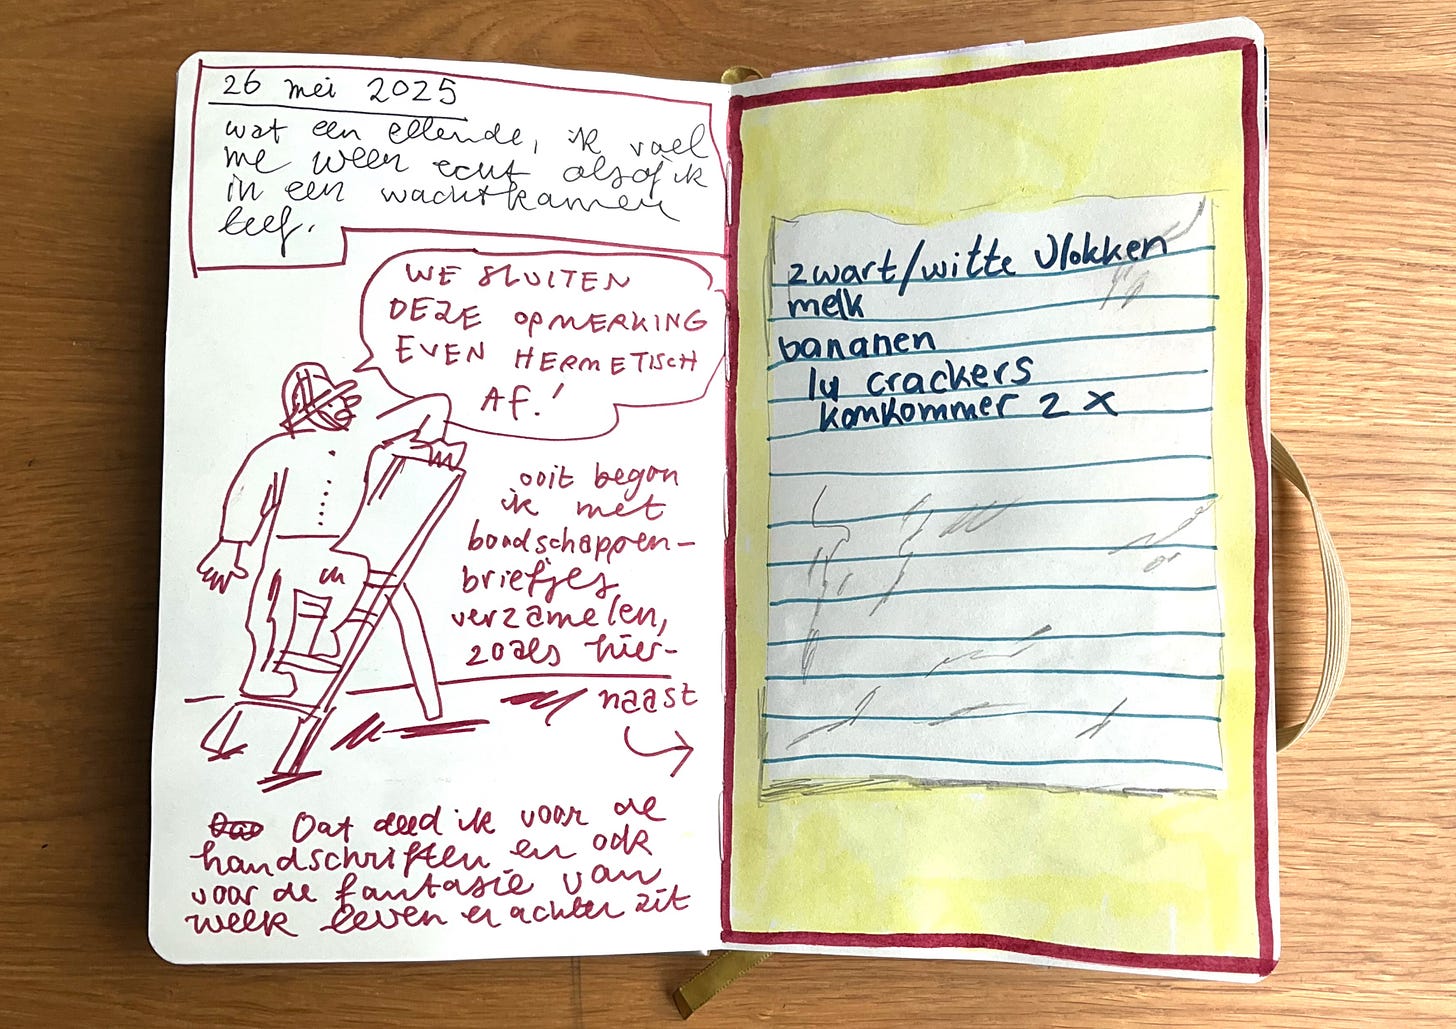 26 mei 2025
wat een ellende, ik voel
me weer echt alsof ik
in een wachtkamer
leef.
WE SLUITEN
DEZE OPMERKING
EVEN HERMETISCH
AF!
ooit begon
ik met
boodschappen-
briefjes
verzamelen,
zoals hier-
naast
Dat deed ik voor de
handschriften en ook
voor de fantasie van
welk leven er achter zit
zwart/witte vlokken
melk
bananen
lu crackers
komkommer 2 x